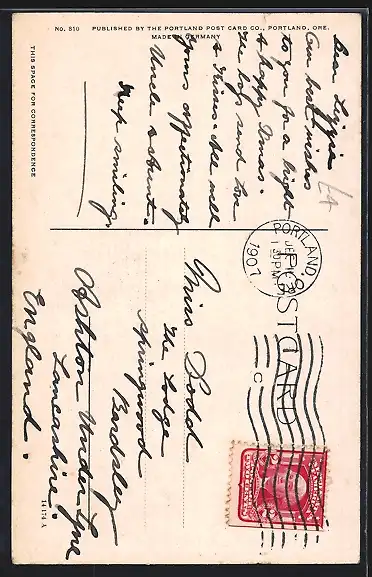 No. 810 PUBLISHED BY THE PORTLAND POST CARD CO., PORTLAND, ORE.
MADE IN GERMANY
THIS SPACE FOR CORRESPONDENCE
POSTCARD
Dear Lizzie
Our best wishes
to you for a bright
& happy Xmas.
The boys send love
& kisses. All well
Yours affectionately
Uncle & Aunt.
Keep smiling
PORTLAND, O
1 30 PM
1907
C
Miss Dodd
The Lodge
Springwood
Bardsley
Ashton Under Lyne
Lancashire.
England.
14174 A